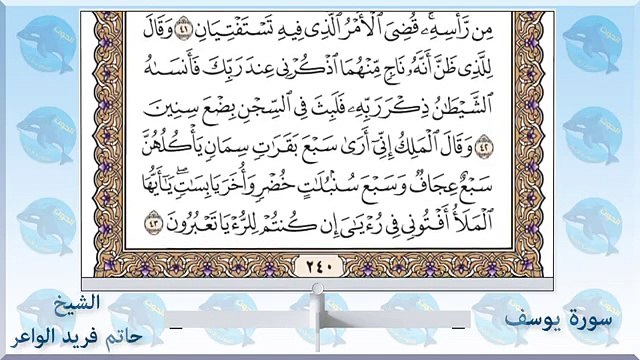 مِن رَّأْسِهِۦ ۚ قُضِىَ ٱلْأَمْرُ ٱلَّذِى فِيهِ تَسْتَفْتِيَانِ ٤١ وَقَالَ
لِلَّذِى ظَنَّ أَنَّهُۥ نَاجٍ مِّنْهُمَا ٱذْكُرْنِى عِندَ رَبِّكَ فَأَنسَىٰهُ
ٱلشَّيْطَٰنُ ذِكْرَ رَبِّهِۦ فَلَبِثَ فِى ٱلسِّجْنِ بِضْعَ سِنِينَ
٤٢ وَقَالَ ٱلْمَلِكُ إِنِّىٓ أَرَىٰ سَبْعَ بَقَرَٰتٍ سِمَانٍ يَأْكُلُهُنَّ
سَبْعٌ عِجَافٌ وَسَبْعَ سُنۢبُلَٰتٍ خُضْرٍ وَأُخَرَ يَابِسَٰتٍ ۖ يَٰٓأَيُّهَا
ٱلْمَلَأُ أَفْتُونِى فِى رُءْيَٰىَ إِن كُنتُمْ لِلرُّءْيَا تَعْبُرُونَ ٤٣
٢٤٠
سورة يوسف
الشيخ
حاتم فريد الواعر
الحوت